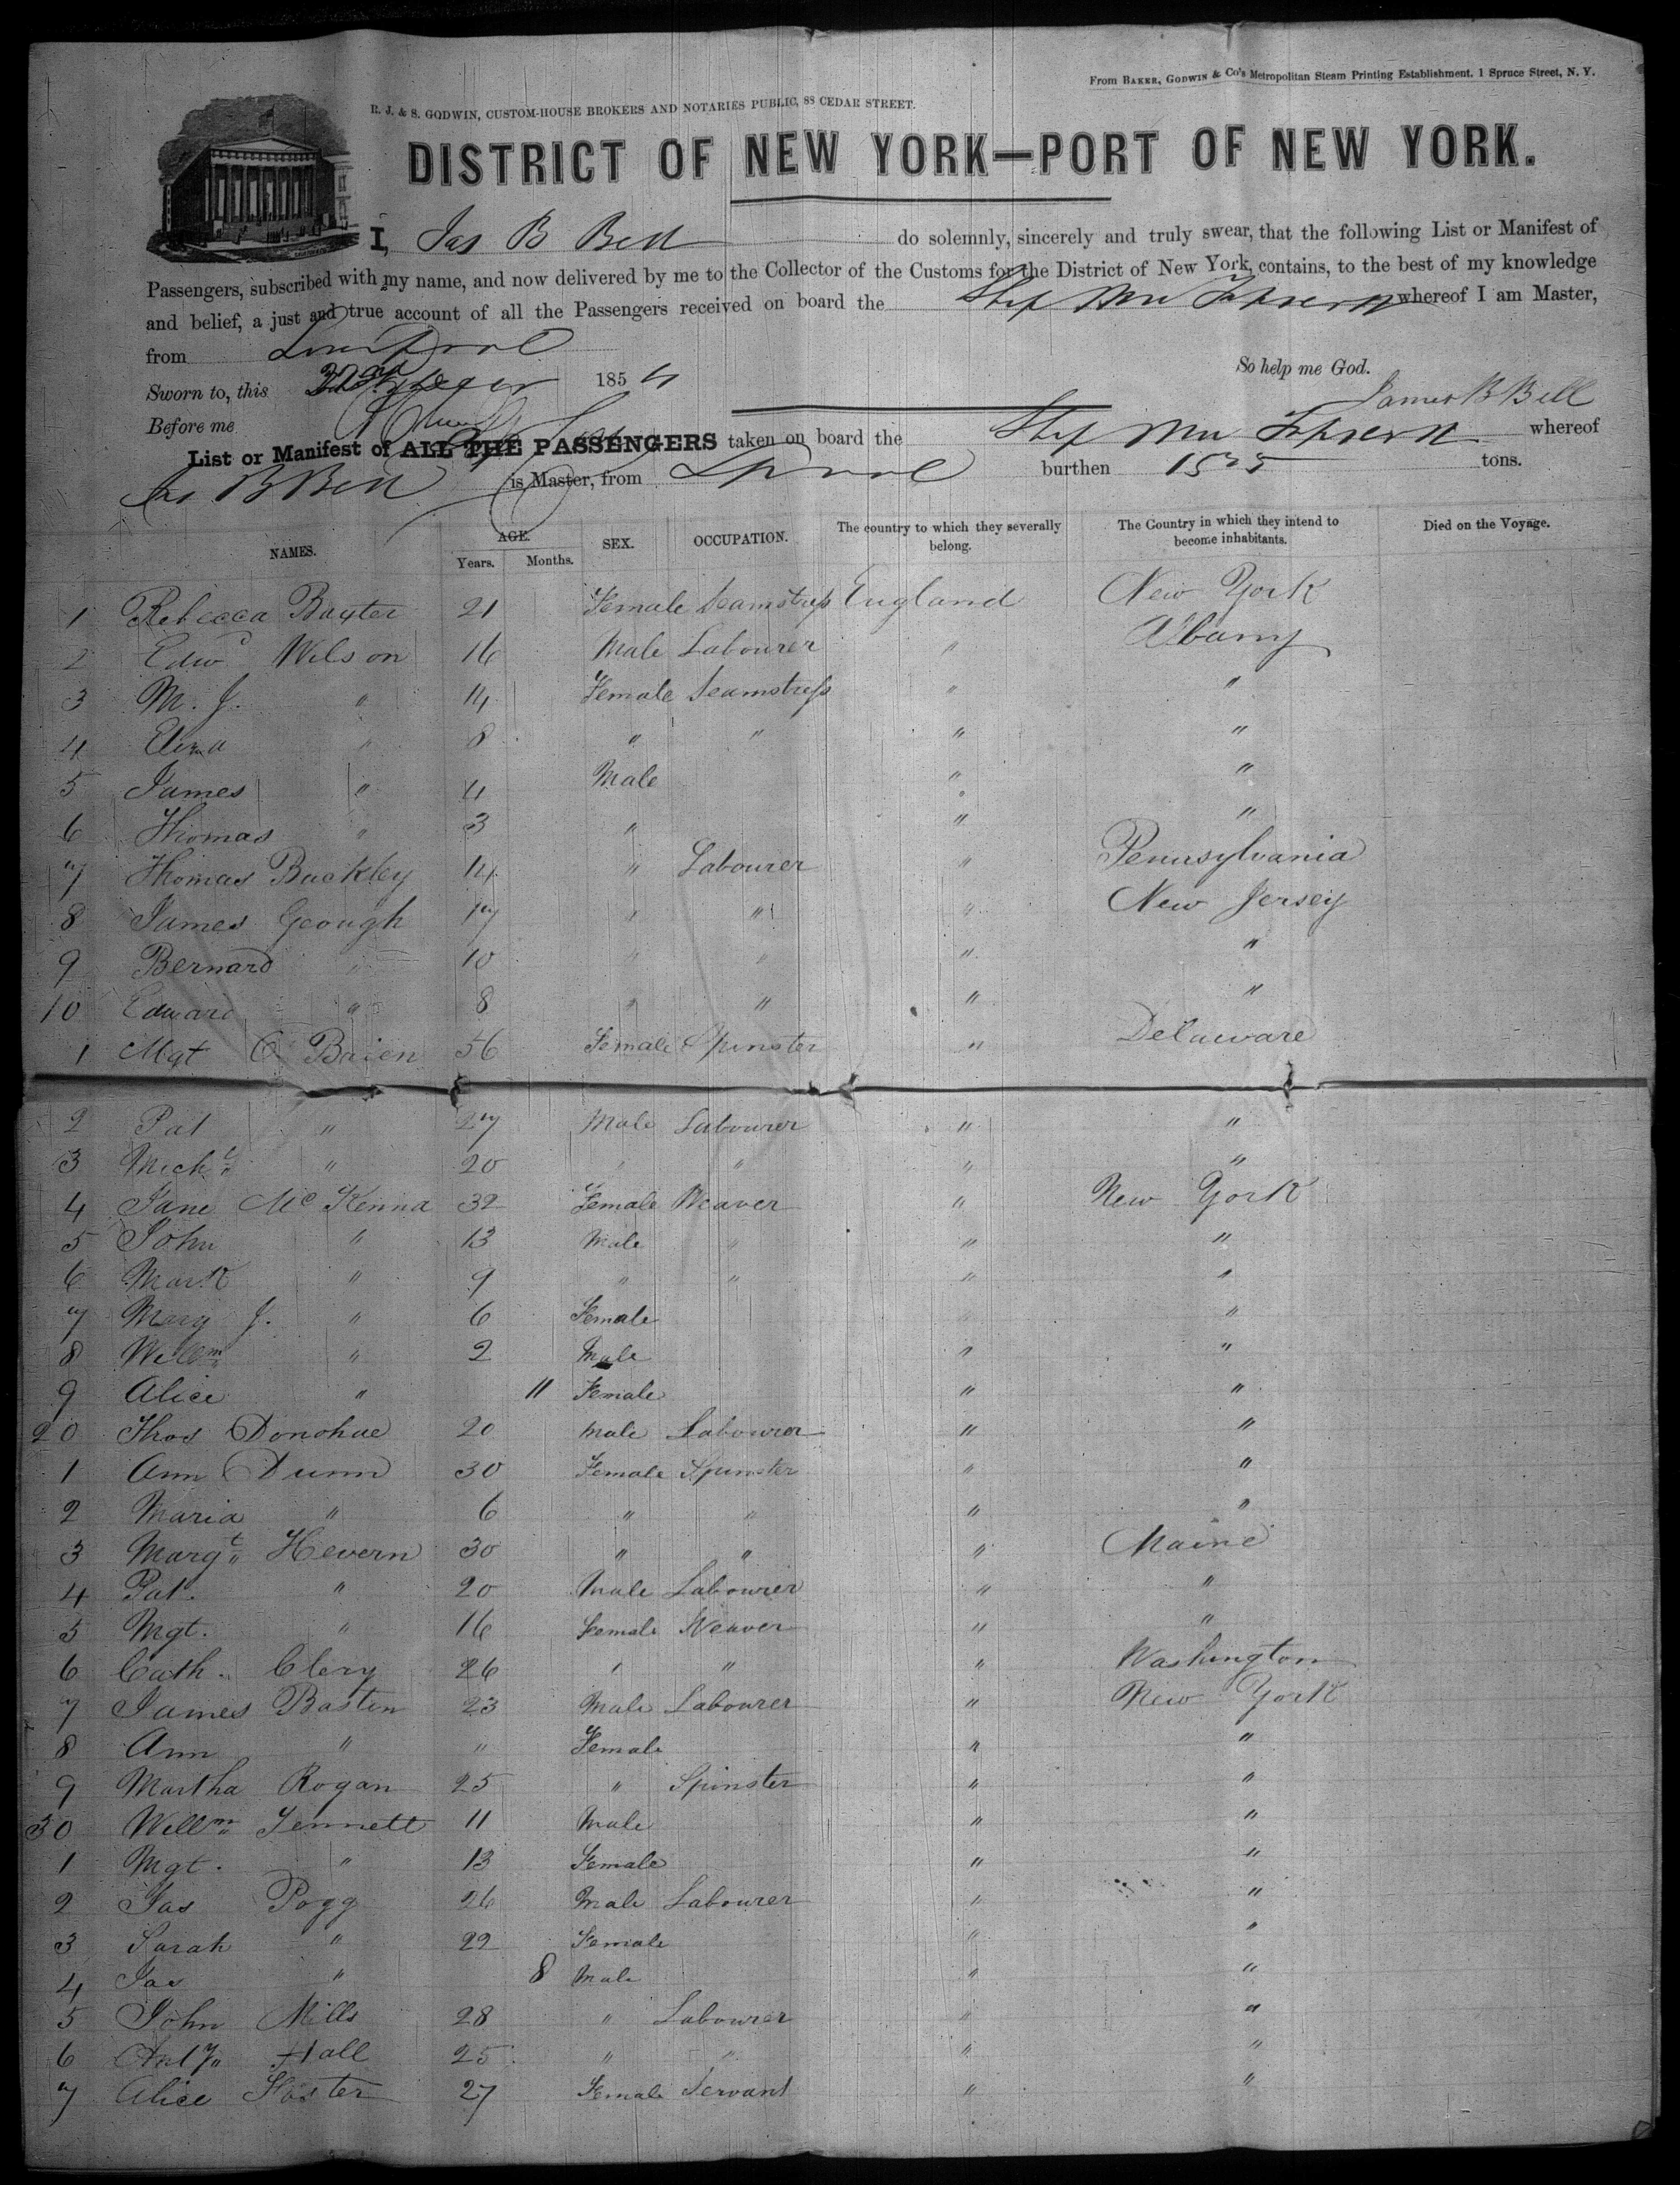 From BAKER, GODWIN & Co's Metropolitan Steam Printing Establishment. 1 Spruce Street, N. Y.
R. J. & S. GODWIN, CUSTOM-HOUSE BROKERS AND NOTARIES PUBLIC, 88 CEDAR STREET.
DISTRICT OF NEW YORK—PORT OF NEW YORK.
I, Jas B Bell do solemnly, sincerely and truly swear, that the following List or Manifest of
Passengers, subscribed with my name, and now delivered by me to the Collector of the Customs for the District of New York, contains, to the best of my knowledge
and belief, a just and true account of all the Passengers received on board the Ship Wm whereof I am Master,
from Liverpool
So help me God.
Sworn to, this 185
James B Bell
Before me
List or Manifest of ALL THE PASSENGERS taken on board the Ship Wm whereof
Jas B Bell is Master, from Lpool burthen tons.
NAMES. AGE. Years. Months. SEX. OCCUPATION. The country to which they severally belong. The Country in which they intend to become inhabitants. Died on the Voyage.
1 Rebecca Baxter 21 Female Seamstress England New York
2 Edwd Wilson 16 Male Labourer " Albany
3 M. J. " 14 Female Seamstress " "
4 Eliza " 8 " " " "
5 James " 4 Male " "
6 Thomas " 3 " " "
7 Thomas Buckley 14 " Labourer " Pennsylvania
8 James Geough 17 " " " New Jersey
9 Bernard " 10 " " " "
10 Edward " 8 " " " "
1 Mgt O Brien 56 Female Spinster " Delaware
2 Pat " 27 Male Labourer " "
3 Michl " 20 " " " "
4 Jane McKenna 32 Female Weaver " New York
5 John " 13 Male " " "
6 Mark " 9 " " " "
7 Mary J. " 6 Female " "
8 Willm " 2 Male " "
9 Alice " 11 Female " "
20 Thos Donohue 20 Male Labourer " "
1 Ann Dunn 30 Female Spinster " "
2 Maria " 6 " " " "
3 Margt Hevern 30 " " " Maine
4 Pat. " 20 Male Labourer " "
5 Mgt. " 16 Female Weaver " "
6 Cath. Clery 26 " " " Washington
7 James Basten 23 Male Labourer " New York
8 Ann " " Female " "
9 Martha Rogan 25 " Spinster " "
30 Willm Jennett 11 Male " "
1 Mgt. " 13 Female " "
2 Jas Pogg 26 Male Labourer " "
3 Sarah " 22 Female " "
4 Jas " 8 Male " "
5 John Mills 28 " Labourer " "
6 Anty Hall 25 " " " "
7 Alice Foster 27 Female Servant " "